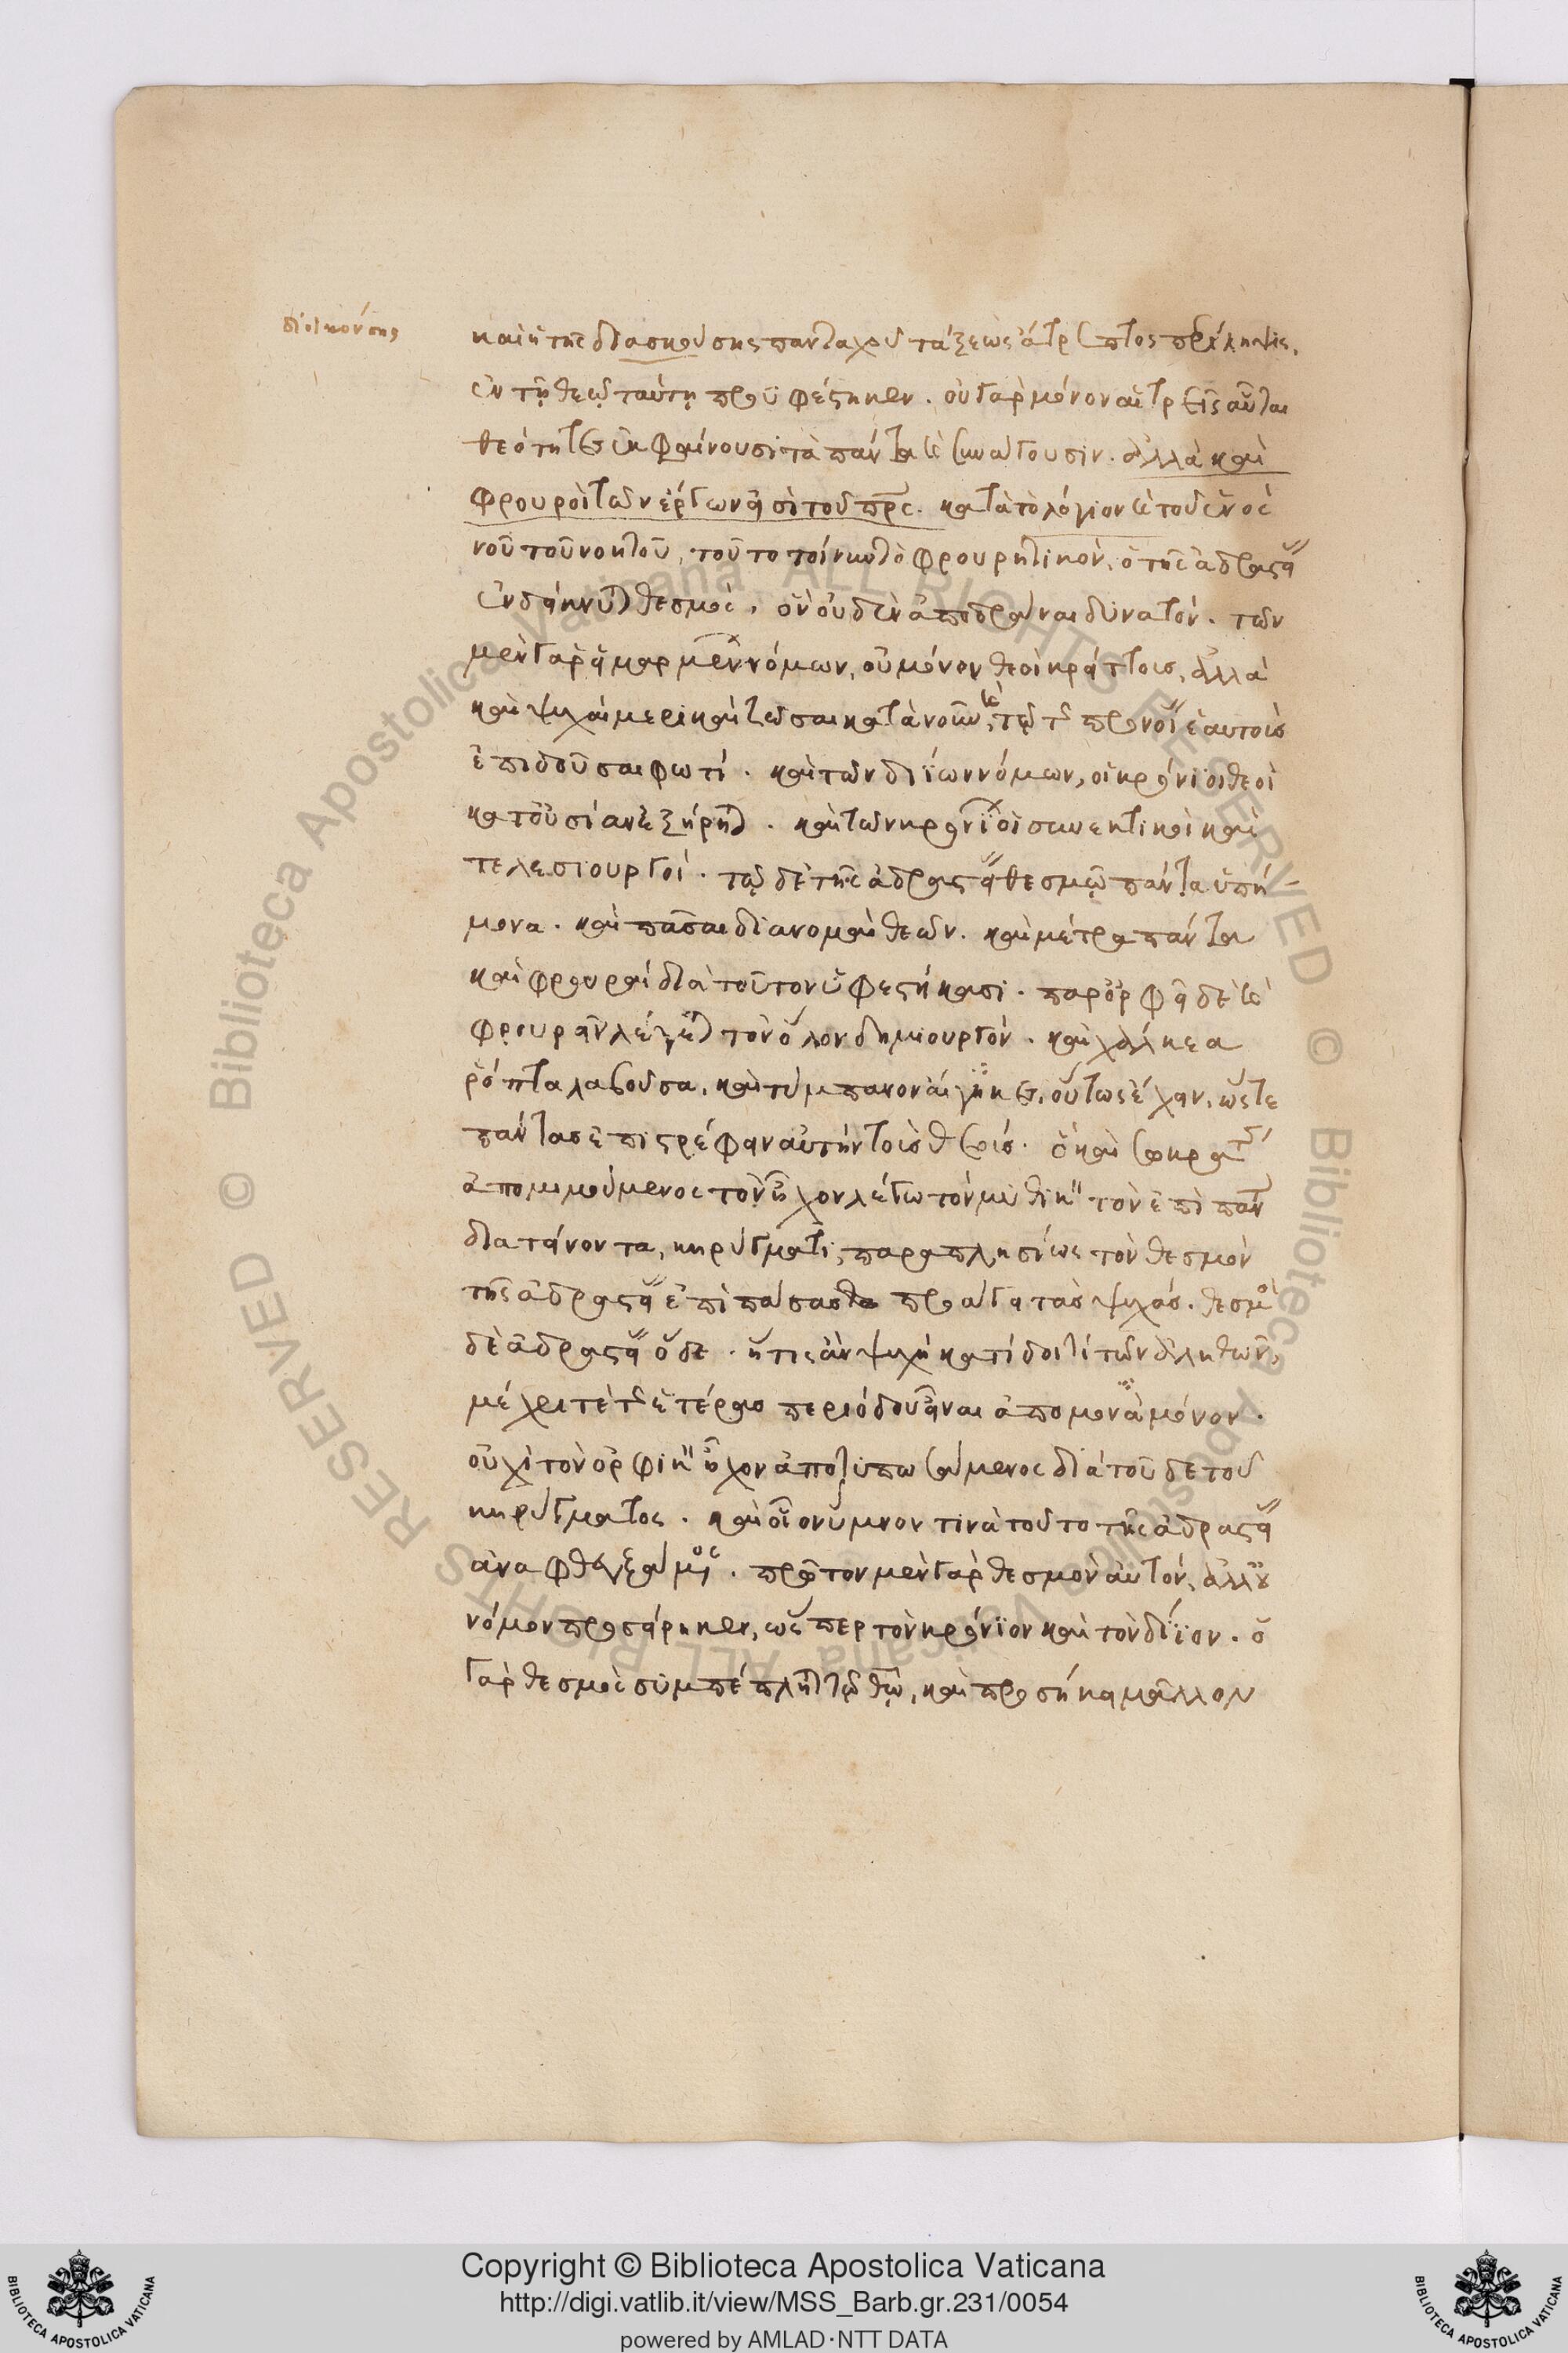 διοικούσης
καὶ ἡ τῆς διασκούσης πανταχοῦ τάξεως ἄτρεπτος περίληψις,
ἐν τῇ θεῷ ταύτῃ προϋφέστηκεν. οὐ γὰρ μόνον αἱ τρεῖς αὗται
θεότητες ἐκφαίνουσι τὰ πάντα καὶ συνάγουσιν. ἀλλὰ καὶ
φρουροὶ τῶν ἔργων εἰσὶ τοῦ πρς. κατὰ τὸ λόγιον καὶ τοῦ ἑνὸς
νοῦ τοῦ νοητοῦ, τοῦτο τοίνυν τὸ φρουρητικόν, ὁ τῆς ἀδραστείας
ἐνδείκνυται θεσμός, ὃν οὐδὲν ἀποδρᾶναι δυνατόν. τῶν
μὲν γὰρ εἱμαρμένων νόμων, οὐ μόνον θεοὶ κρείττους, ἀλλὰ
καὶ ψυχαὶ μερικαὶ ζῶσαι κατὰ νοῦν, καὶ τῷ τῆς προνοίας ἑαυτὰς
ἐπιδοῦσαι φωτί. καὶ τῶν διΐων νόμων, οἱ κρόνιοι θεοὶ
κατ' οὐσίαν ἐξῄρηνται. καὶ τῶν κρονίων οἱ συνεκτικοὶ καὶ
τελεσιουργοί. τῷ δὲ τῆς ἀδραστείας θεσμῷ πάντα ὑπή-
κοα. καὶ πᾶσαι διανομαὶ θεῶν. καὶ μέτρα πάντα
καὶ φρουραὶ διὰ τοῦτον ὑφεστήκασι. παρ' ὀρφεῖ δὲ καὶ
φρουρεῖν λέγεται τὸν ὅλον δημιουργόν. καὶ χάλκεα
ῥόπτα λαβοῦσα, καὶ τύμπανον αἰγῆκες, οὕτως ἔχειν, ὥστε
πάντας ἐπιστρέφειν αὐτὴν τοὺς θεούς. ὃ καὶ σωκράτης
ἀπομιμούμενος τὸν ἦχον λέγω τὸν μυθικὸν τὸν ἐπὶ πάντα
διατείνοντα, κηρύγματι, παραπλησίως τὸν θεσμὸν
τῆς ἀδραστείας ἐπὶ πάσας προάγει τὰς ψυχάς. θεσμὸς
δὲ ἀδραστείας ὅδε. ἥτις ἂν ψυχὴ κατίδοι τι τῶν ἀληθῶν,
μέχρι τε τῆς ἑτέρας περιόδου εἶναι ἀπήμονα μόνον.
οὐχὶ τὸν ὀρφικὸν ἦχον ἀποτυπωσάμενος διὰ τοῦδε τοῦ
κηρύγματος. καὶ οἷον ὕμνον τινὰ τοῦτο τῆς ἀδραστείας
ἀναφθεγξάμενος. πρῶτον μὲν γὰρ θεσμὸν αὐτόν, ἀλλ' οὐ
νόμον προσείρηκεν, ὥσπερ τὸν κρόνιον καὶ τὸν δίϊον. ὁ
γὰρ θεσμὸς συμπέπλεκται τῷ θεῷ, καὶ προσήκει μᾶλλον
Copyright © Biblioteca Apostolica Vaticana
http://digi.vatlib.it/view/MSS_Barb.gr.231/0054
powered by AMLAD·NTT DATA
BIBLIOTECA APOSTOLICA VATICANA
BIBLIOTECA APOSTOLICA VATICANA
© Biblioteca Apostolica Vaticana ALL RIGHTS RESERVED
© Biblioteca Apostolica Vaticana ALL RIGHTS RESERVED